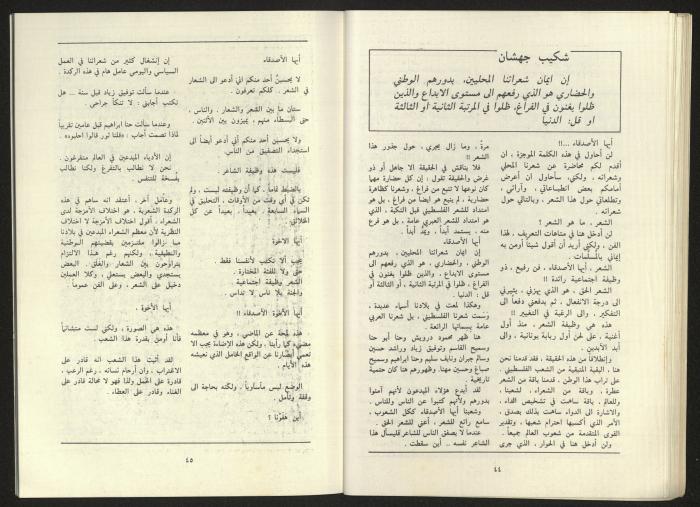 شكيب جهشان
إن ايمان شعرائنا المحليين، بدورهم الوطني
والحضاري هو الذي رفعهم الى مستوى الابداع والذين
ظلوا يغنون في الفراغ، ظلوا في المرتبة الثانية او الثالثة
او قل: الدنيا
أيها الأصدقاء ...!!
لن أحاول في هذه الكلمة الموجزة ، ان
أقدم لكم محاضرة عن شعرنا المحلي
وشعرائه ، ولكني، سأحاول ان أعرض
أمامكم بعض انطباعاتي ، وآرائي ،
وتطلعاتي حول هذا الشعر ، وبالتالي حول
شعرائه .
الشعر ، ما هو الشعر ؟
لن أدخل هنا في متاهات التعريف . لهذا
الفن ، ولكني أريد أن أقول شيئاً أومن به
إيماني بالمسلّمات .
الشعر ، أيها الأصدقاء ، فن رفيع ، ذو
وظيفة اجتماعية رائدة !!
الشعر الحق ، هو الذي يهزني ، يثيرني
الى درجة الانفعال ، ثم يدفعني دفعاً الى
التفكير ، والى الرغبة في التغيير !!
هذه هي وظيفة الشعر ، منذ أول
أغنية ، على لحن أول ربابة يونانية ، والى
أبد الآبدين .
وإنطلاقاً من هذه الحقيقة ، فقد قدمنا نحن
هنا ، البقية المتبقية من الشعب الفلسطيني ،
على تراب هذا الوطن ، قدمنا باقة من الشعر
عطرة ، وباقة من الشعراء ، لشعبنا ،
وللعالم ، باقة ساهمت في تشخيص الداء ،
والاشارة الى الدواء ساهمت بذلك بصدق ،
الأمر الذي أكسبها احترام شعبها ، وتقدير
القوى المتقدمة من شعوب العالم جميعاً .
ولن أدخل هنا في الحوار ، الذي جرى
مرة ، وما زال يجري ، حول جذور هذا
الشعر !!
فلا يناقش في الحقيقة الا جاهل أو ذو
غرض والحقيقة تقول ، إن كل حضارة مهما
كان نوعها لا تنبع من فراغ ، وشعرنا كظاهرة
حضارية ، لم ينبع هو ايضا من فراغ ، بل هو
امتداد للشعر الفلسطيني قبل النكبة ، الذي
هو امتداد للشعر العربي عامة ، بل هو فرع
منه ، يستمد أبداً ، ويُمد أبداً .
أيها الأصدقاء
إن ايمان شعرائنا المحليين ، بدورهم
الوطني ، والحضاري ، هو الذي رفعهم الى
مستوى الابداع ، والذين ظلوا يغنون في
الفراغ ، ظلوا في المرتبة الثانية ، أو الثالثة أو
قل : الدنيا .
وهكذا لمعت في بلادنا أسماء عديدة ،
وسمت شعرنا الفلسطيني ، بل شعرنا العربي
عامة بسماتها الرائعة .
هنا ظهر محمود درويش وحنا أبو حنا
وسميح القاسم وتوفيق زياد وراشد حسين
وسالم جبران ونايف سليم وحنا ابراهيم وسميح
صباغ وحسين مهنا. وظهورهم هنا كان حتمية
تاريخية .
لقد أبدع هؤلاء المبدعون لأنهم آمنوا
بدورهم ولأنهم كتبوا عن الناس وللناس .
وشعبنا أيها الأصدقاء ككل الشعوب ،
سامع رائع للشعر ، أعني للشعر الحق .
عندما لا يصفق الناس للشاعر فليسأل هذا
الشاعر نفسه .. أين سقطت .
٤٤
أيها الأصدقاء
لا يحسبنّ أحد منكم اني أدعو الى الشعار
في الشعر . كلكم تعرفون .
ستان ما بين الشعر والشعار . والناس ،
حتى البسطاء منهم ، يميزون بين الأثنين .
ولا يحسبن أحد منكم أني أدعو أيضاً الى
استجداء التصفيق من الناس
فليست هذه وظيفة الشاعر .
بالضبط تماماً . كما أن وظيفته ليست ، ولم
تكن في أي وقت من الأوقات ، التحليق في
السماء السابعة . بعيداً ، بعيداً عن كل
الخلائق .
أيها الاخوة
يجب ألا نكتب لأنفسنا فقط .
حتى ولا للفئة المختارة .
الشعر وظيفة اجتماعية .
والجنة بلا ناس لا تداس .
أيها الأخوة الأصدقاء !!
هذه لمحة عن الماضي ، وهو في معظمه
مضيء كما رأينا . ولكن هذه الإضاءة يجب الا
تعمي أبصارنا عن الواقع الخامل الذي نعيشه
هذه الأيام .
الوضع ليس مأساوياً . ولكنه بحاجة الى
وقفة وتأمل .
أين عثرنا ؟
إن إنشغال كثير من شعرائنا في العمل
السياسي واليومي عامل هام في هذه الركدة .
عندما سألت توفيق زياد قبل سنة ... هل
تكتب أجابني : لا تنكأ جراحي .
وعندما سألت حنا ابراهيم قبل عامين تقريباً
لماذا تصمت أجاب . «قلنا ثور قالوا احلبوه» .
إن الأدباء المبدعين في العالم متفرغون .
نحن لا نطالب بالتفرغ ولكنا نطالب
بفُسحة للتنفس .
وعامل آخر ، أعتقد انه ساهم في هذه
الركدة الشعرية ، هو اختلاف الأمزجة لدى
الشعراء . أقول اختلاف الأمزجة لا اختلاف
النظرية لأن معظم الشعراء المبدعين في بلادنا
ما زالوا ملتزمين بقضيتهم الوطنية
والطبقية ، ولكنهم رغم هذا الالتزام
يتراوحون بين الشعار والغلق . البعض
يستجدي والبعض يستعلي . وكلا العملين
دخيل على الشعر ، وعلى الفن عموماً .
أيها الأخوة .
هذه هي الصورة ، ولكني لست متشائماً
فأنا أومن بقدرة هذا الشعب .
لقد أثبت هذا الشعب انه قادر على
الاغتراب ، وان أرحام نسائه . رغم الرعب ،
قادرة على الحمل ولذا فهو لا محالة قادر على
الغناء، وقادر على العطاء .
٤٥